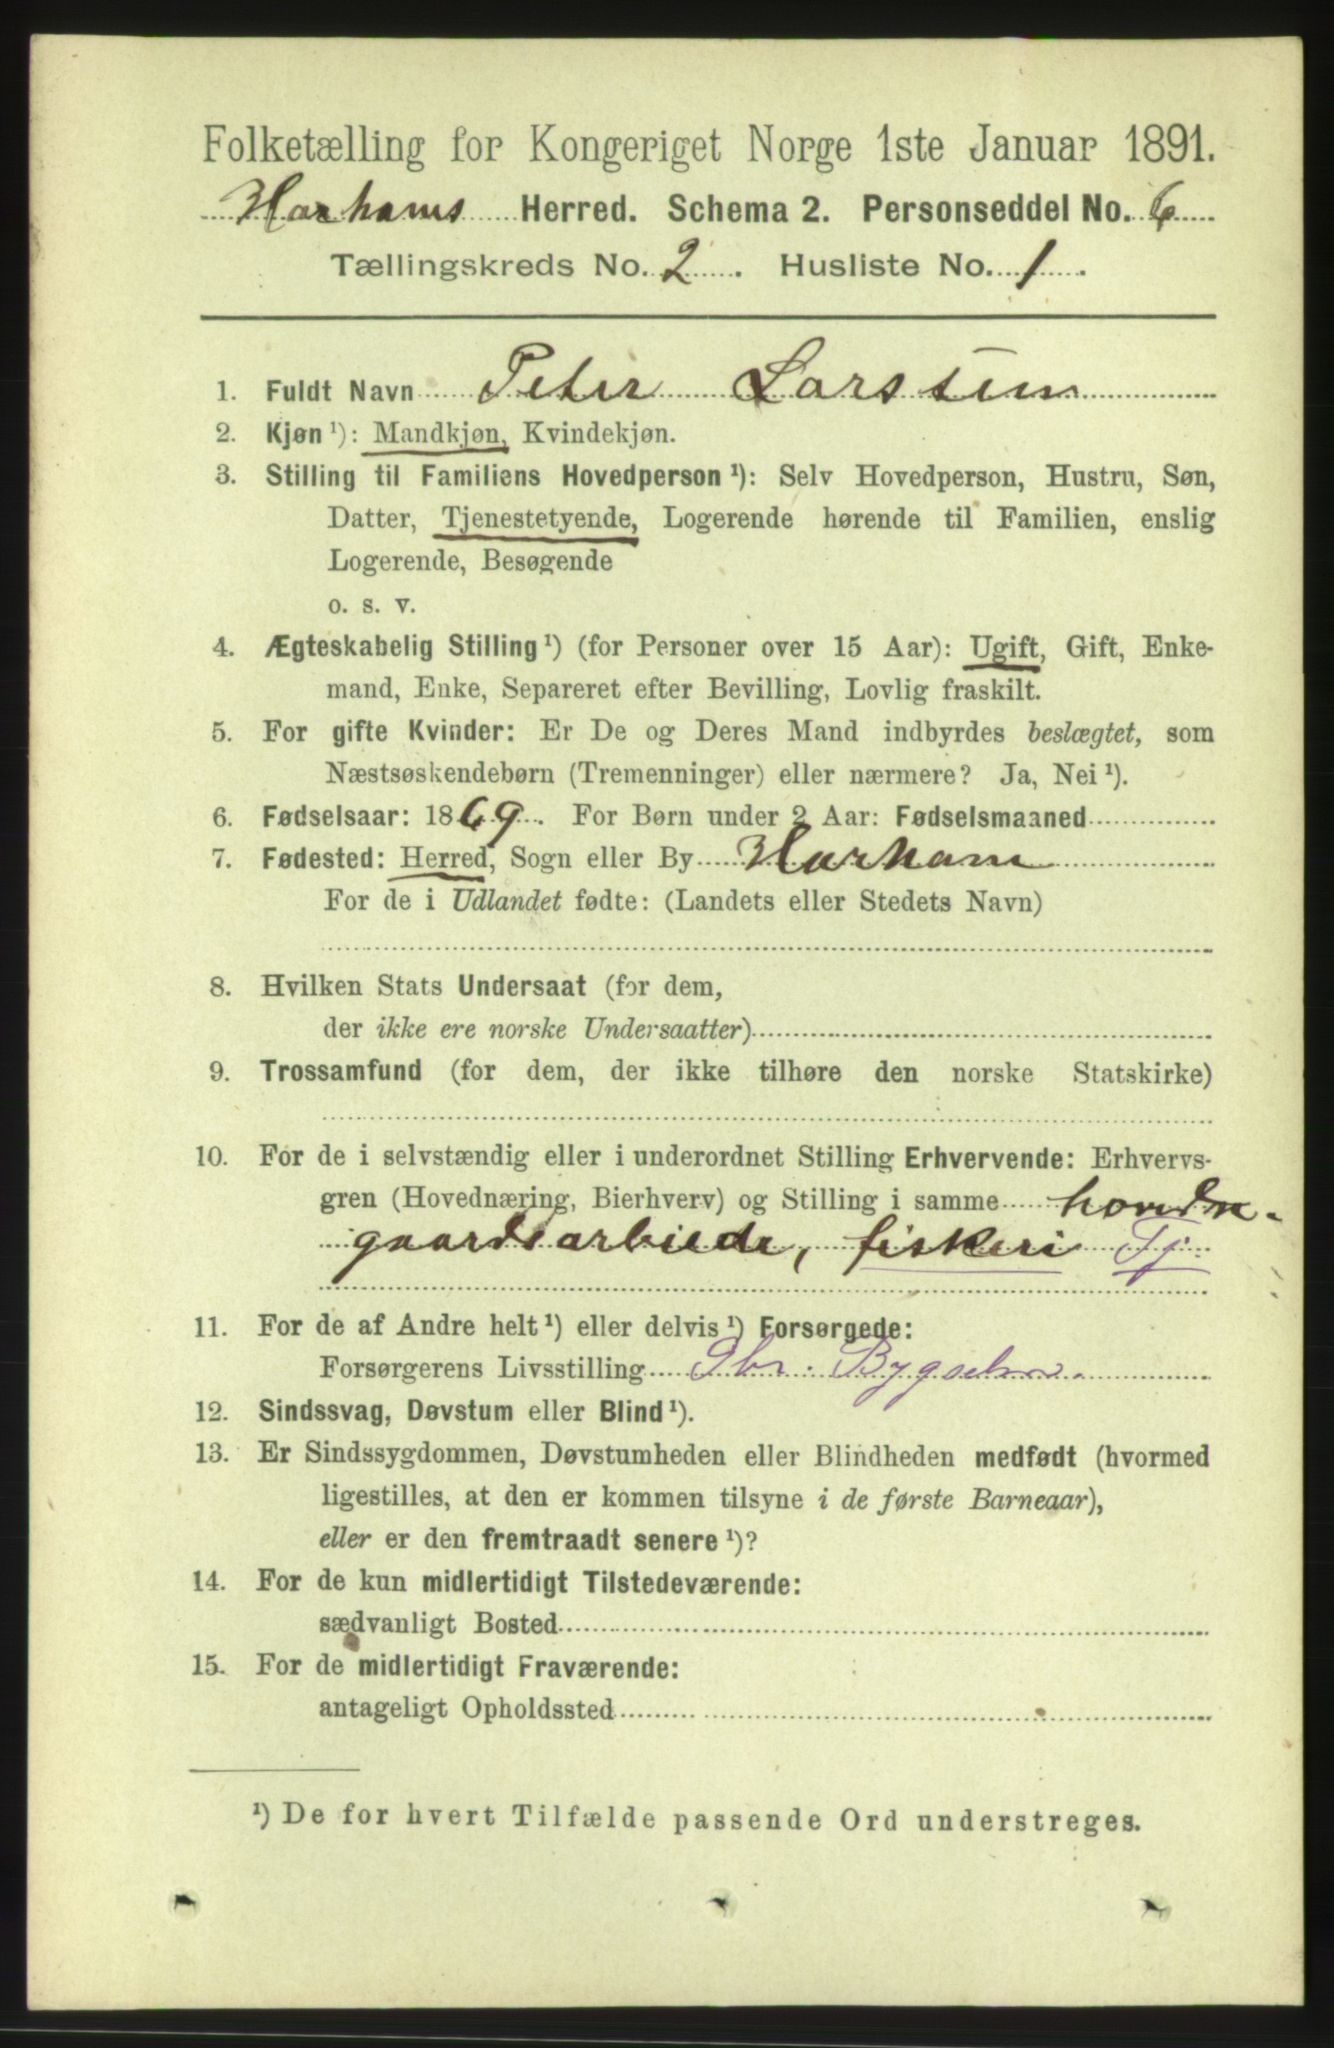 Folketælling for Kongeriget Norge 1ste Januar 1891.
Harhams Herred. Schema 2. Personseddel No. 6
Tællingskreds No. 2. Husliste No. 1.
1. Fuldt Navn Peter Larsten
2. Kjøn ¹): Mandkjøn, Kvindekjøn.
3. Stilling til Familiens Hovedperson ¹): Selv Hovedperson, Hustru, Søn,
Datter, Tjenestetyende, Logerende hørende til Familien, enslig
Logerende, Besøgende
o. s. v.
4. Ægteskabelig Stilling ¹) (for Personer over 15 Aar): Ugift, Gift, Enke-
mand, Enke, Separeret efter Bevilling, Lovlig fraskilt.
5. For gifte Kvinder: Er De og Deres Mand indbyrdes beslægtet, som
Næstsøskendebørn (Tremenninger) eller nærmere? Ja, Nei ¹).
6. Fødselsaar: 1869. For Børn under 2 Aar: Fødselsmaaned
7. Fødested: Herred, Sogn eller By Harham
For de i Udlandet fødte: (Landets eller Stedets Navn)
8. Hvilken Stats Undersaat (for dem,
der ikke ere norske Undersaatter)
9. Trossamfund (for dem, der ikke tilhøre den norske Statskirke)
10. For de i selvstændig eller i underordnet Stilling Erhvervende: Erhvervs-
gren (Hovednæring, Bierhverv) og Stilling i samme
gaardsarbeide, fiskeri Tj
11. For de af Andre helt ¹) eller delvis ¹) Forsørgede:
Forsørgerens Livsstilling Gbr. Bygselm.
12. Sindssvag, Døvstum eller Blind ¹).
13. Er Sindssygdommen, Døvstumheden eller Blindheden medfødt (hvormed
ligestilles, at den er kommen tilsyne i de første Barneaar),
eller er den fremtraadt senere ¹)?
14. For de kun midlertidigt Tilstedeværende:
sædvanligt Bosted
15. For de midlertidigt Fraværende:
antageligt Opholdssted
¹) De for hvert Tilfælde passende Ord understreges.